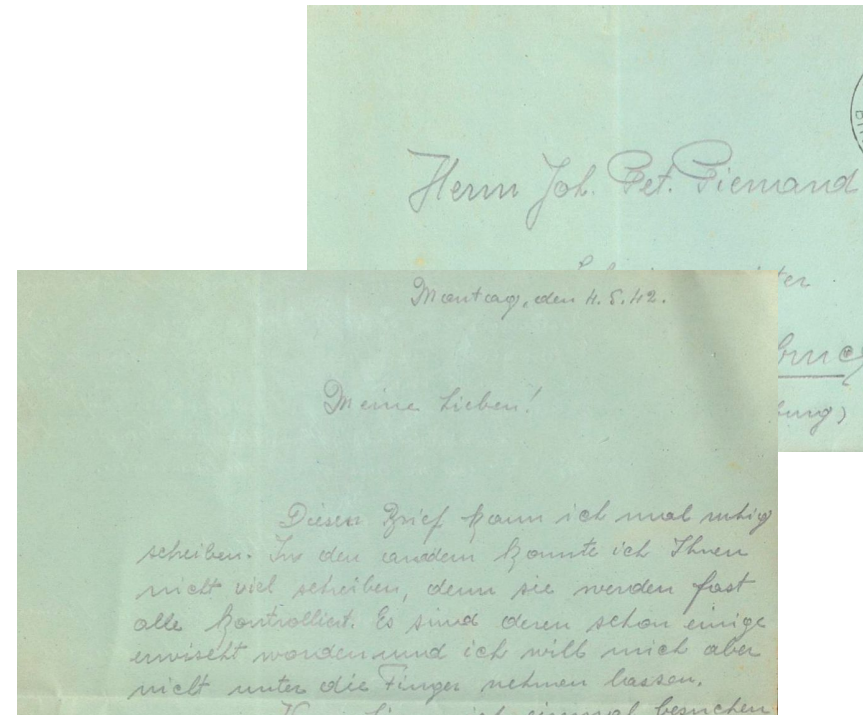 Herrn Joh. Pet. Piemand
Montag, den 4.5.42.
Meine Lieben!
Diesen Brief kann ich mal ruhig
scheiben. In den andern konnte ich Ihnen
nicht viel schreiben, denn sie werden fast
alle kontrolliert. Es sind deren schon einige
erwischt worden und ich will mich aber
nicht unter die Finger nehmen lassen.
einmal besuchen